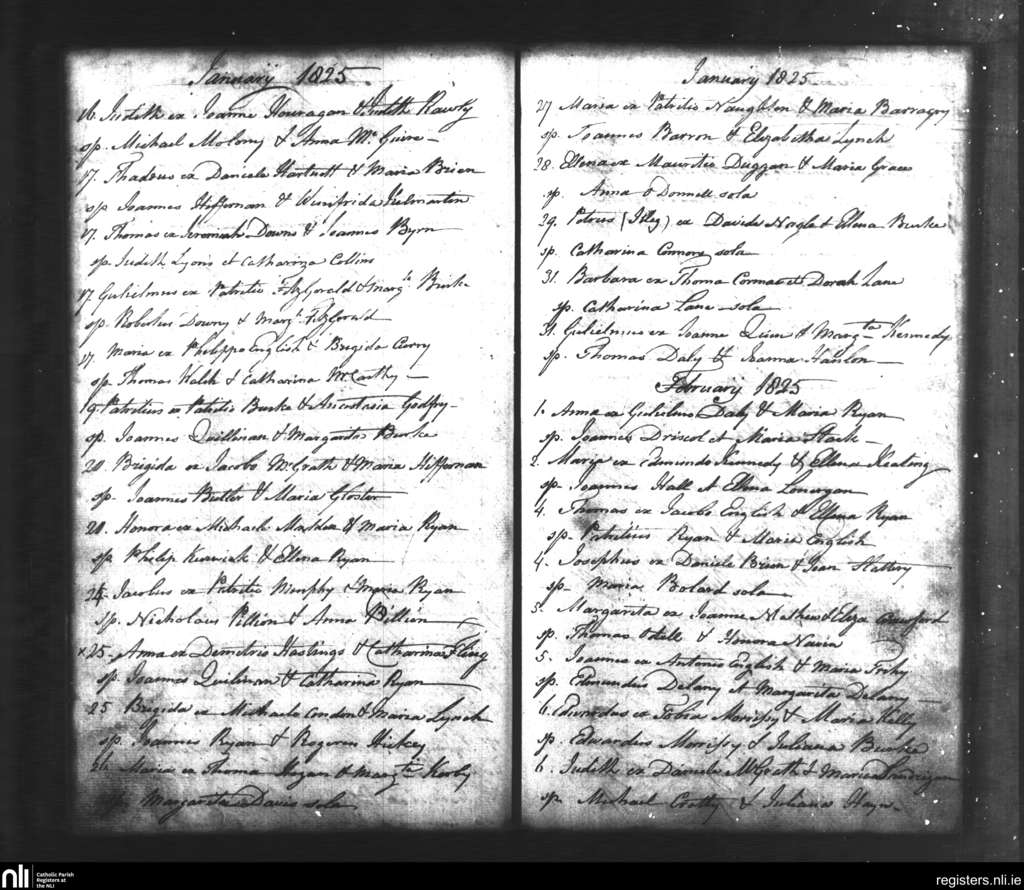 January 1825
16. Judith ex Joanne Houragan & Judith Rawly
sp. Michael Molony & Anna Mc Guire
17. Thadeus ex Daniele Hartnett & Maria Brien
sp Joannes Heffernan & Winifrida Kelmartin
17. Thomas ex Jeremiah Downs & Joannes Byrn
sp. Judith Lyons et Catharina Collins
17 Gulielmus ex Patritio FitzGerald & Margt. Burke
sp. Robertus Downy & Margt. Fitzgerald
17 Maria ex Philippo English & Brigida Curry
sp. Thomas Walsh & Catharina McCarthy
19 Patritius ex Patritio Burke & Anastasia Godfry
sp. Joannes Quillinan & Margarita Burke
20. Brigida ex Jacobo McGrath & Maria Heffernan
sp. Joannes Butler & Maria Gloster
20. Honora ex Michaele Madden & Maria Ryan
sp Philip Kerwick & Ellena Ryan
24. Jacobus ex Patritio Murphy & Maria Ryan
sp. Nicholaus Pillion & Anna Pillion
x 25. Anna ex Demetrio Hastings & Catharina Fling
sp. Joannes Quilinan & Catharina Ryan
25 Brigida ex Michaele Condon & Maria Lynch
sp. Joannes Ryan & Rogerus Hickey
26. Maria ex Thoma Hogan & Margta Kerby
sp. Margarita Davis sola
January 1825
27 Maria ex Patritio Naughton & Maria Barragry
sp. Joannes Barron & Elizabetha Lynch
28. Ellena ex Mauritio Duggan & Maria Grace
sp. Anna O Donnell sola
29. Petrus ex Davide Nagle & Ellena Burke
sp. Catharina Connory sola
31. Barbara ex Thoma Cormac et Dorah Lane
sp. Catharina Lane sola
31. Gulielmus ex Joanne Quinn & Margta Kennedy
sp. Thomas Daly & Joanna Hanlon
February 1825
1. Anna ex Gulielmo Daly & Maria Ryan
sp. Joannes Driscol et Maria Stack
2. Maria ex Edmundo Kennedy & Ellena Keating
sp. Joannes Hall et Ellena Lonergan
4. Thomas ex Jacobo English & Ellena Ryan
sp. Patritius Ryan & Maria English
4. Josephus ex Daniele Brien & Jean Slattery
sp. Maria Bolard sola
5. Margarita ex Joanne Mathew & Eliza Crawford
sp. Thomas Odell & Honora Navin
5. Joannes ex Antonio English & Maria Fahy
sp. Edmundus Delany et Margarita Delany
6. Edwardus ex Tobia Morrissy & Maria Kelly
sp. Edwardus Morrissy & Juliana Burke
6. Judith ex Daniele McGrath & Maria Landrigan
sp. Michael Crotty & Juliana Hays
nli Catholic Parish Registers at the NLI
registers.nli.ie